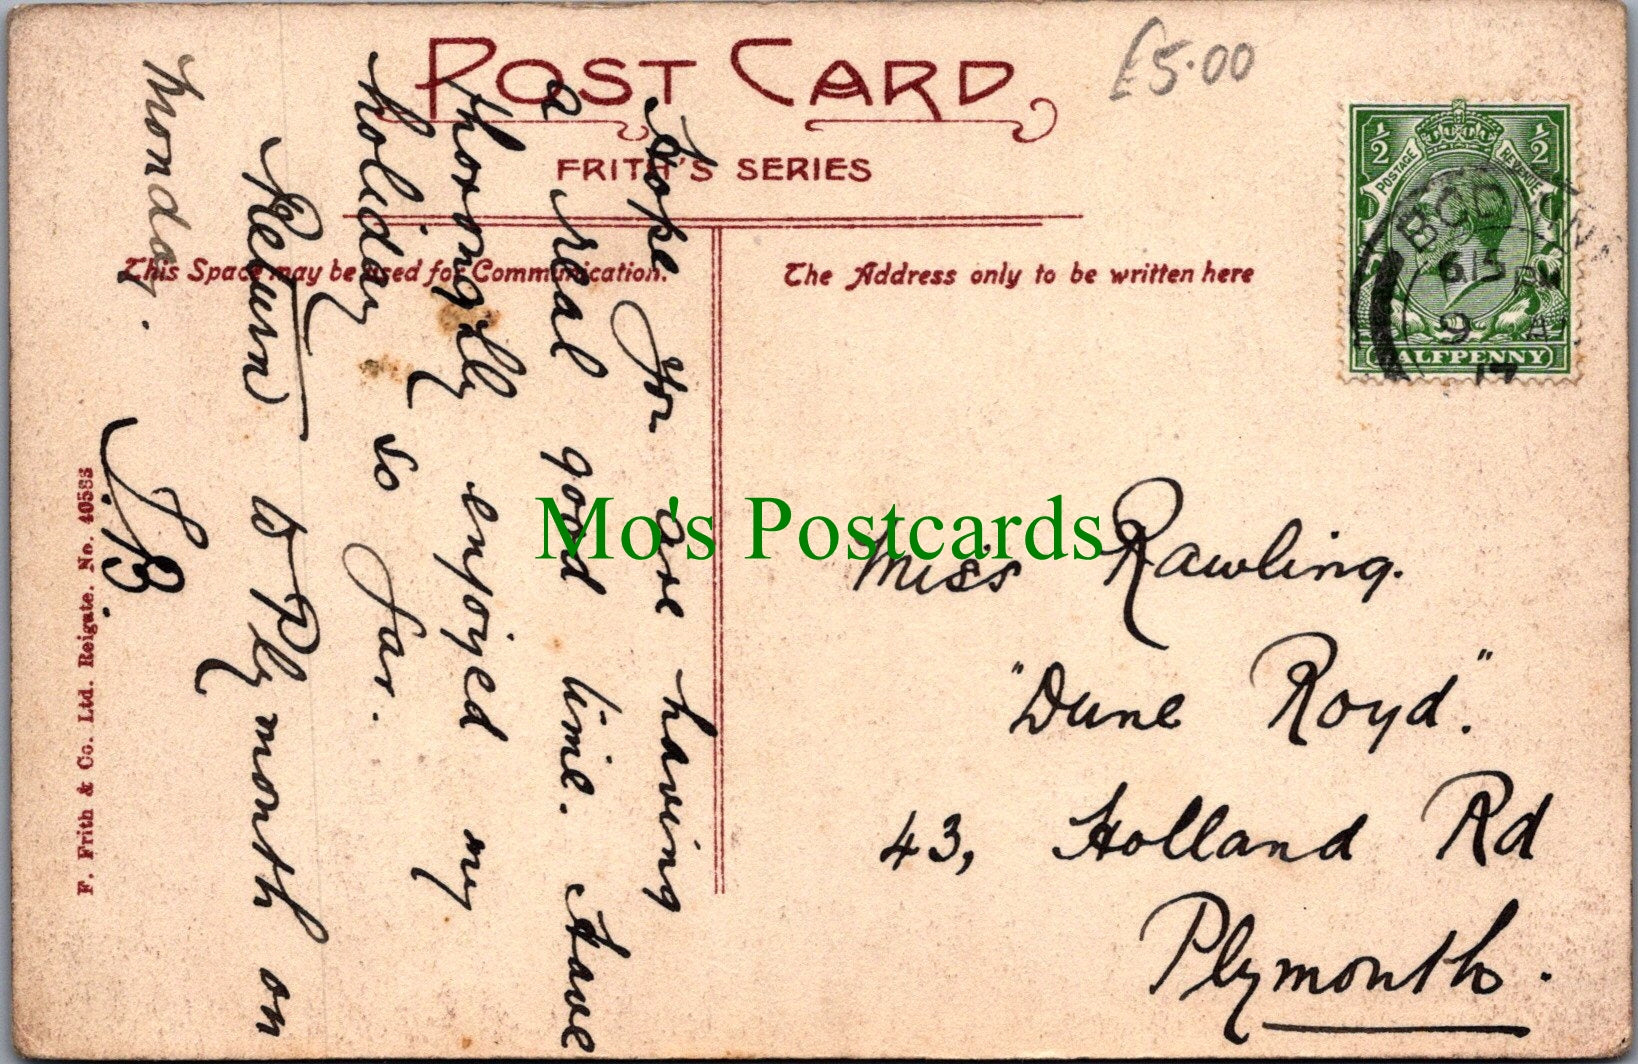 POST CARD
£5.00
FRITH'S SERIES
This Space may be used for Communication.
The Address only to be written here
½ ½
POSTAGE REVENUE
HALFPENNY
BODMIN
6.15 PM
9 AU
Hope you are having
a real good time. Have
thoroughly enjoyed my
holiday so far.
Return to Plymouth on
Monday.
J.B.
Miss Rawling.
"Dune Royd".
43, Holland Rd
Plymouth.
F. Frith & Co. Ltd. Reigate. No. 40583
Mo's Postcards